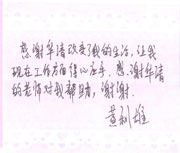 感谢华清改变了我的生活，让我
现在工作方面得心应手。感谢华清
的老师对我帮助，谢谢．
黄利雄